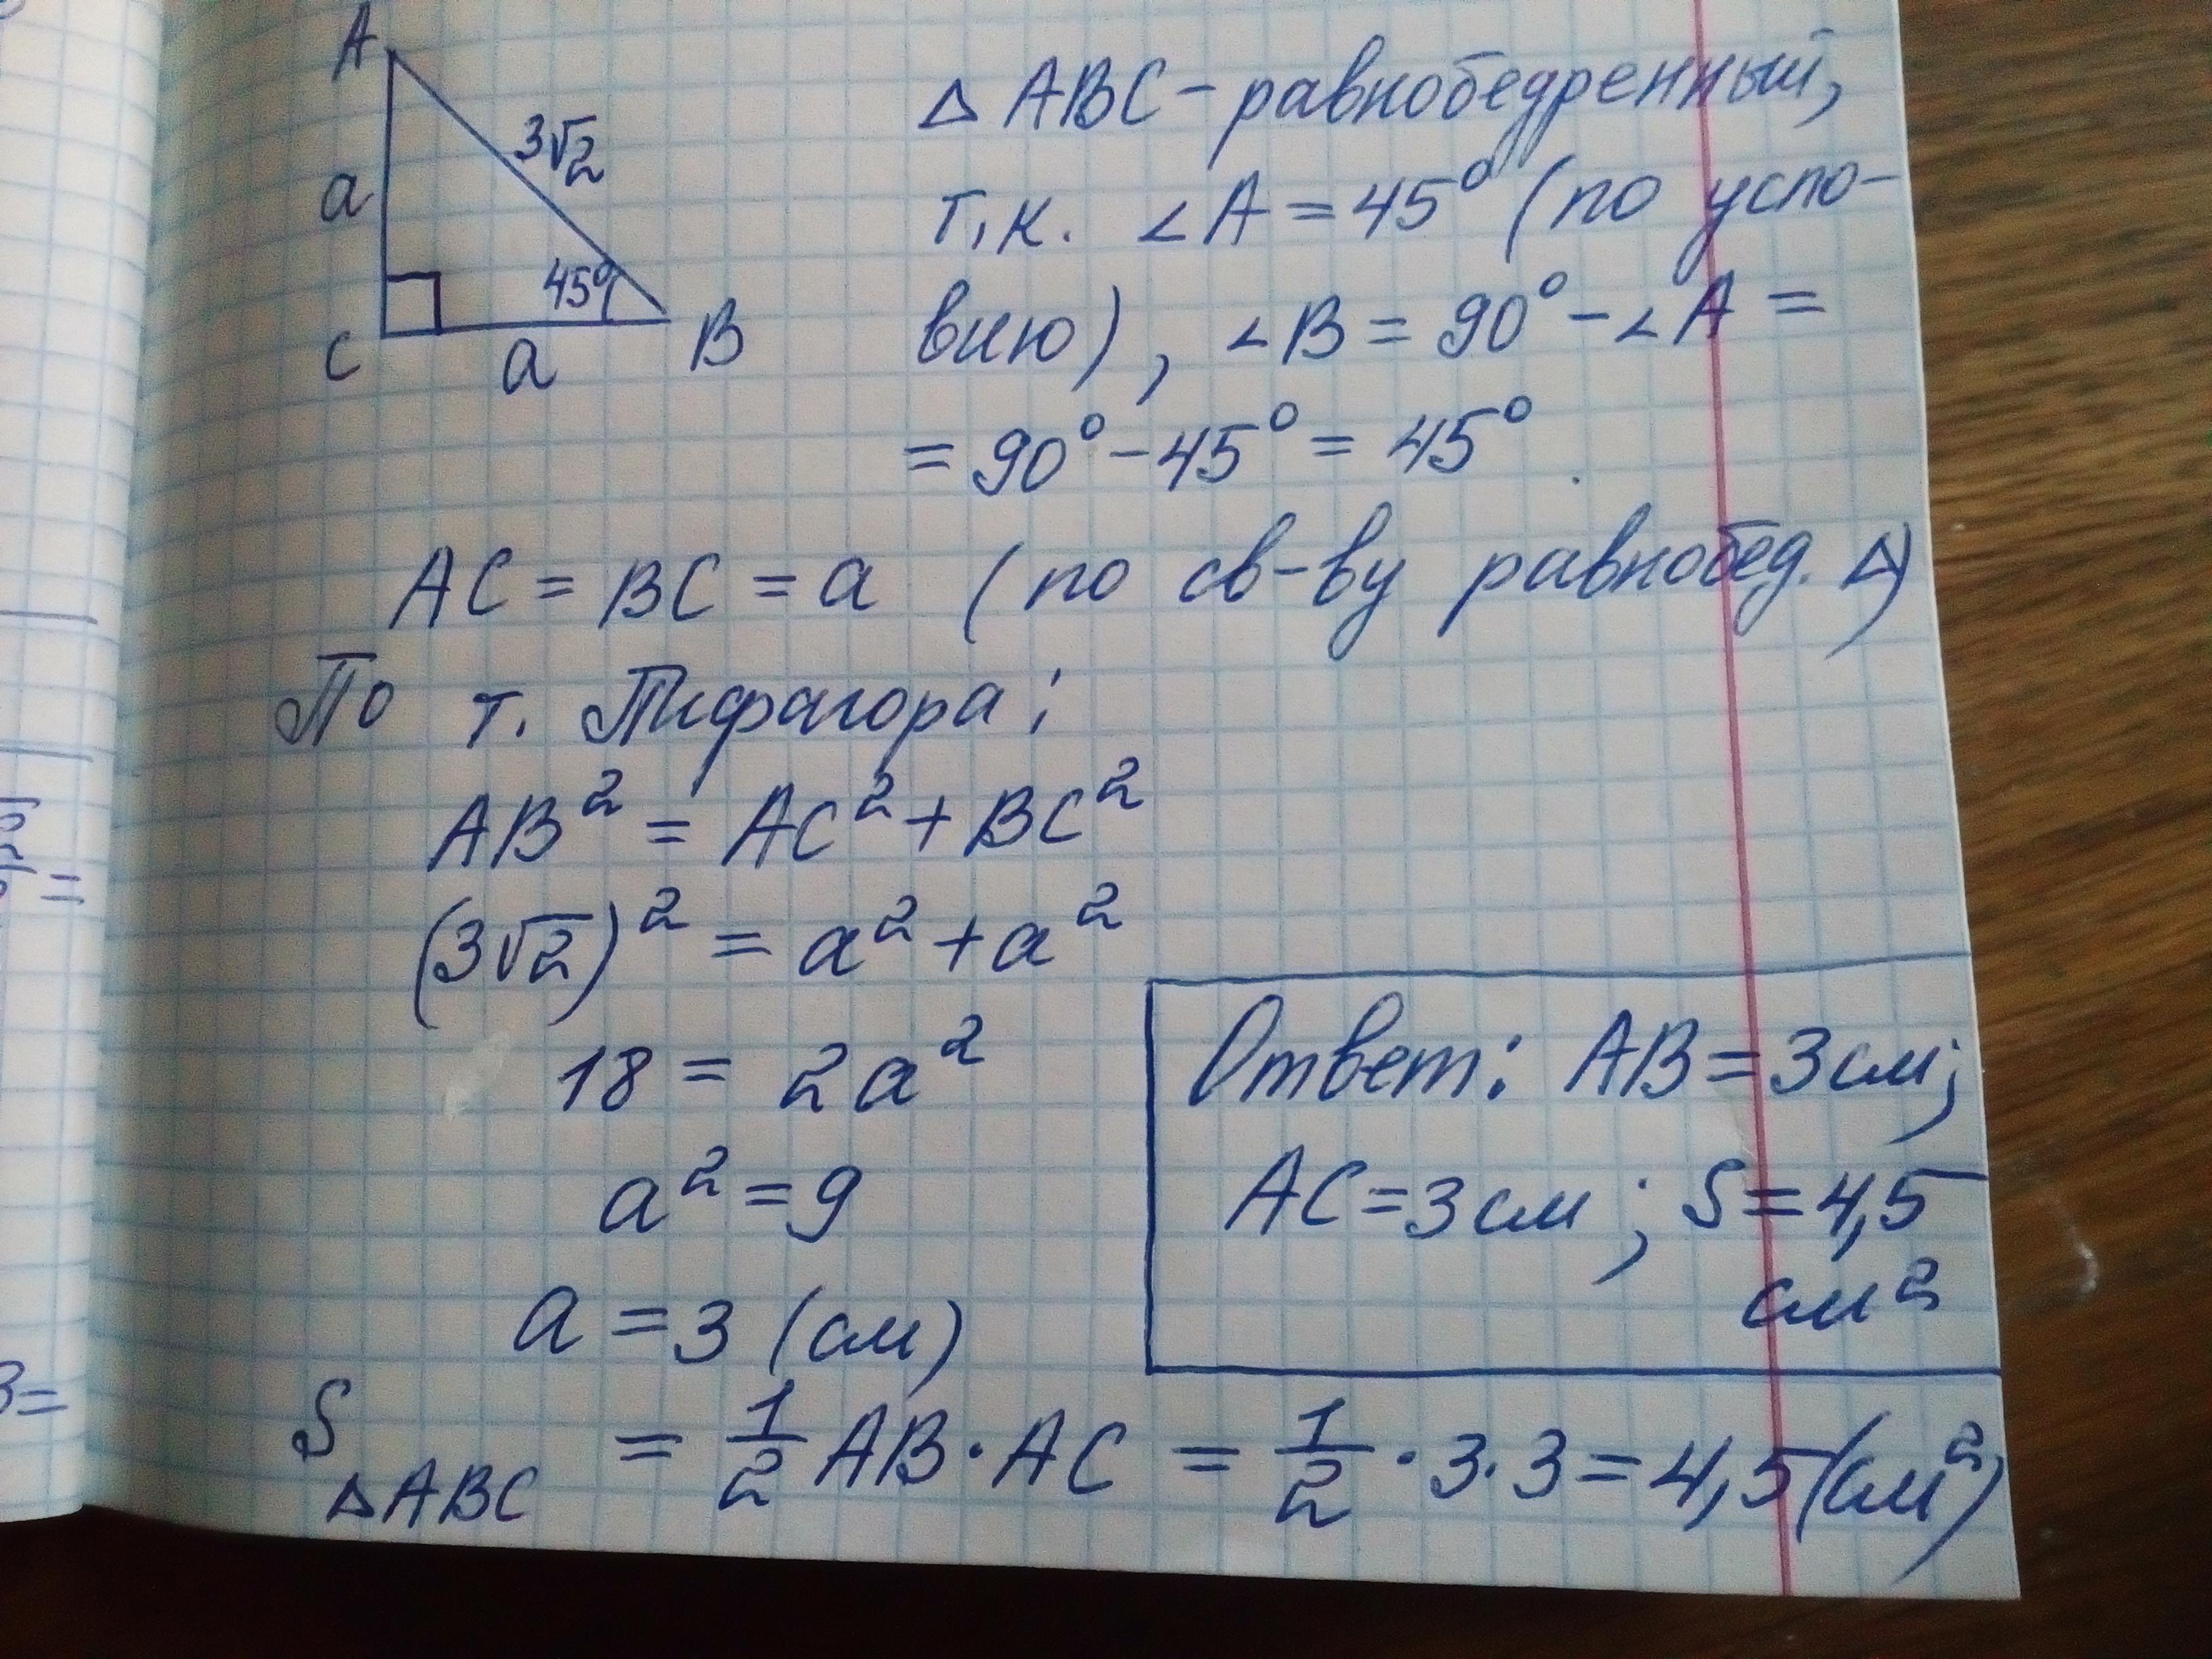 A
3√2
a
45°
C
a
B
△ ABC - равнобедренный,
т.к. ∠A = 45° (по усло-
вию), ∠B = 90° - ∠A =
= 90° - 45° = 45°
AC = BC = a (по св-ву равнобед. △)
По т. Пифагора:
AB² = AC² + BC²
(3√2)² = a² + a²
18 = 2a²
a² = 9
a = 3 (см)
Ответ: AB = 3 см;
AC = 3 см; S = 4,5
см²
S△ABC = 1/2 AB · AC = 1/2 · 3 · 3 = 4,5 (см²)
=
3=